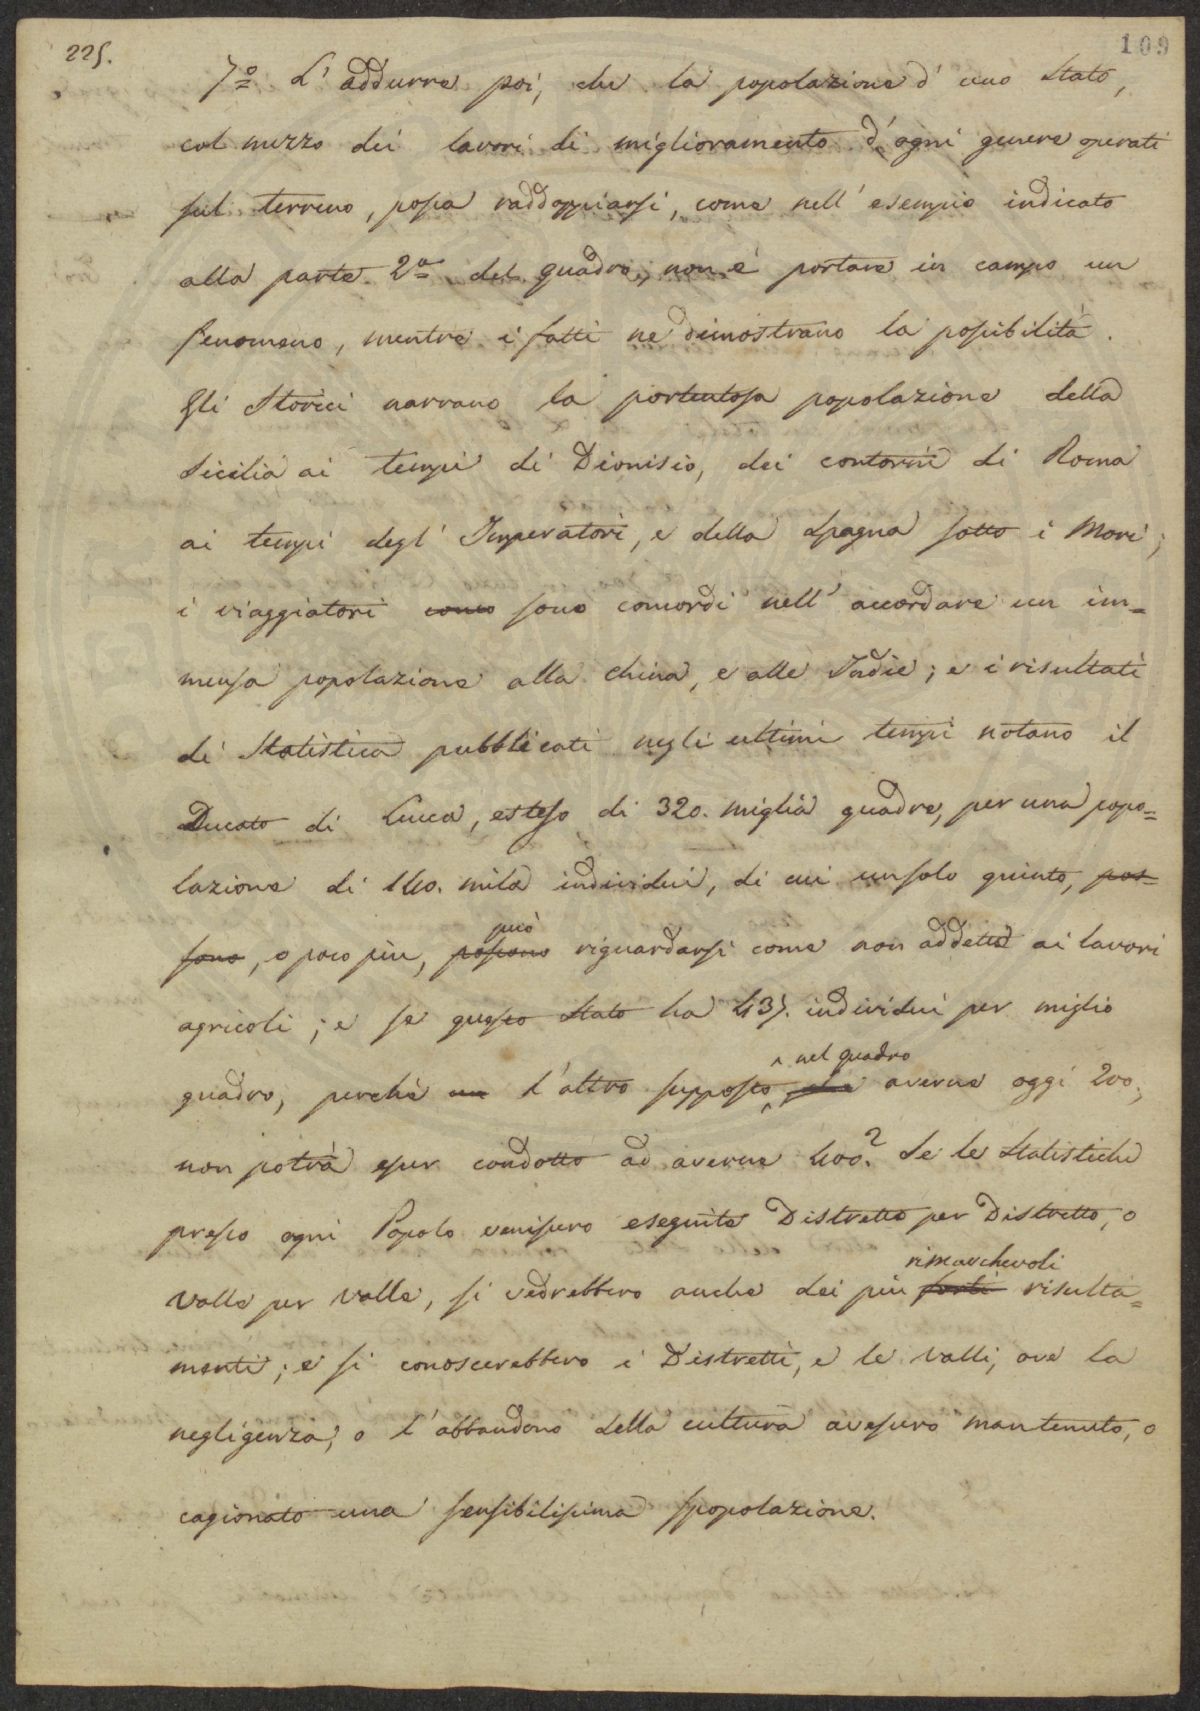 225.
109
7.º L'addurre poi, che la popolazione d'uno Stato,
col mezzo dei lavori di miglioramento d'ogni genere operati
sul terreno, possa raddoppiarsi, come nell'esempio indicato
alla parte 2.ª del quadro, non è portare in campo un
fenomeno, mentre i fatti ne dimostrano la possibilità.
Gli Storici narrano la portentosa popolazione della
Sicilia ai tempi di Dionisio, dei contorni di Roma
ai tempi degl'Imperatori, e della Spagna sotto i Mori;
i viaggiatori sono concordi nell'accordare un im=
mensa popolazione alla China, e alle Indie; e i risultati
di Statistica pubblicati negli ultimi tempi notano il
Ducato di Lucca, esteso di 320. miglia quadre, per una popo=
lazione di 140. mila individui, di cui un solo quinto, pos=
sono, o poco più, possono può riguardarsi come non addetto ai lavori
agricoli; e se questo Stato ha 437. individui per miglio
quadro, perchè un l'altro supposto nel quadro averne oggi 200,
non potrà esser condotto ad averne 400? Se le Statistiche
presso ogni Popolo venissero eseguite Distretto per Distretto, o
Valle per Valle, si vedrebbero anche dei più forti rimarchevoli risulta=
menti; e si conoscerebbero i Distretti, e le Valli, ove la
negligenza, o l'abbandono della cultura avessero mantenuto, o
cagionato una sensibilissima spopolazione.